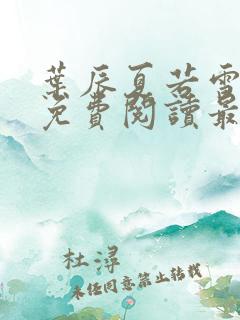 葉辰夏若雪
免費閱讀最
杜潯
未經同意禁止轉載